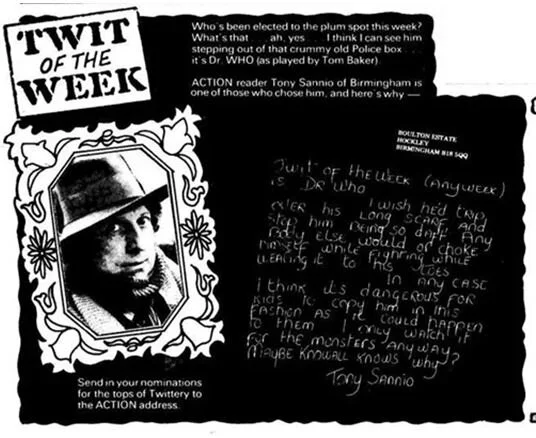 TWIT
OF THE
WEEK
Who's been elected to the plum spot this week?
What's that . . . ah, yes . . . I think I can see him
stepping out of that crummy old Police box . . .
it's Dr. WHO (as played by Tom Baker).
ACTION reader Tony Sannio of Birmingham is
one of those who chose him, and here's why —
BOULTON ESTATE
HOCKLEY
BIRMINGHAM B18 5QQ
Twit of the week (any week)
is Dr Who
I wish he'd trip
over his long scarf and
stop him being so daft Any
body else would of choke
himself while fighting while
wearing it to his toes
In any case
I think its dangerous for
kids to copy him in this
fashion as it could happen
to them I only watch it
for the monsters anyway
Maybe knowall knows why?
Tony Sannio
Send in your nominations
for the tops of Twittery to
the ACTION address.